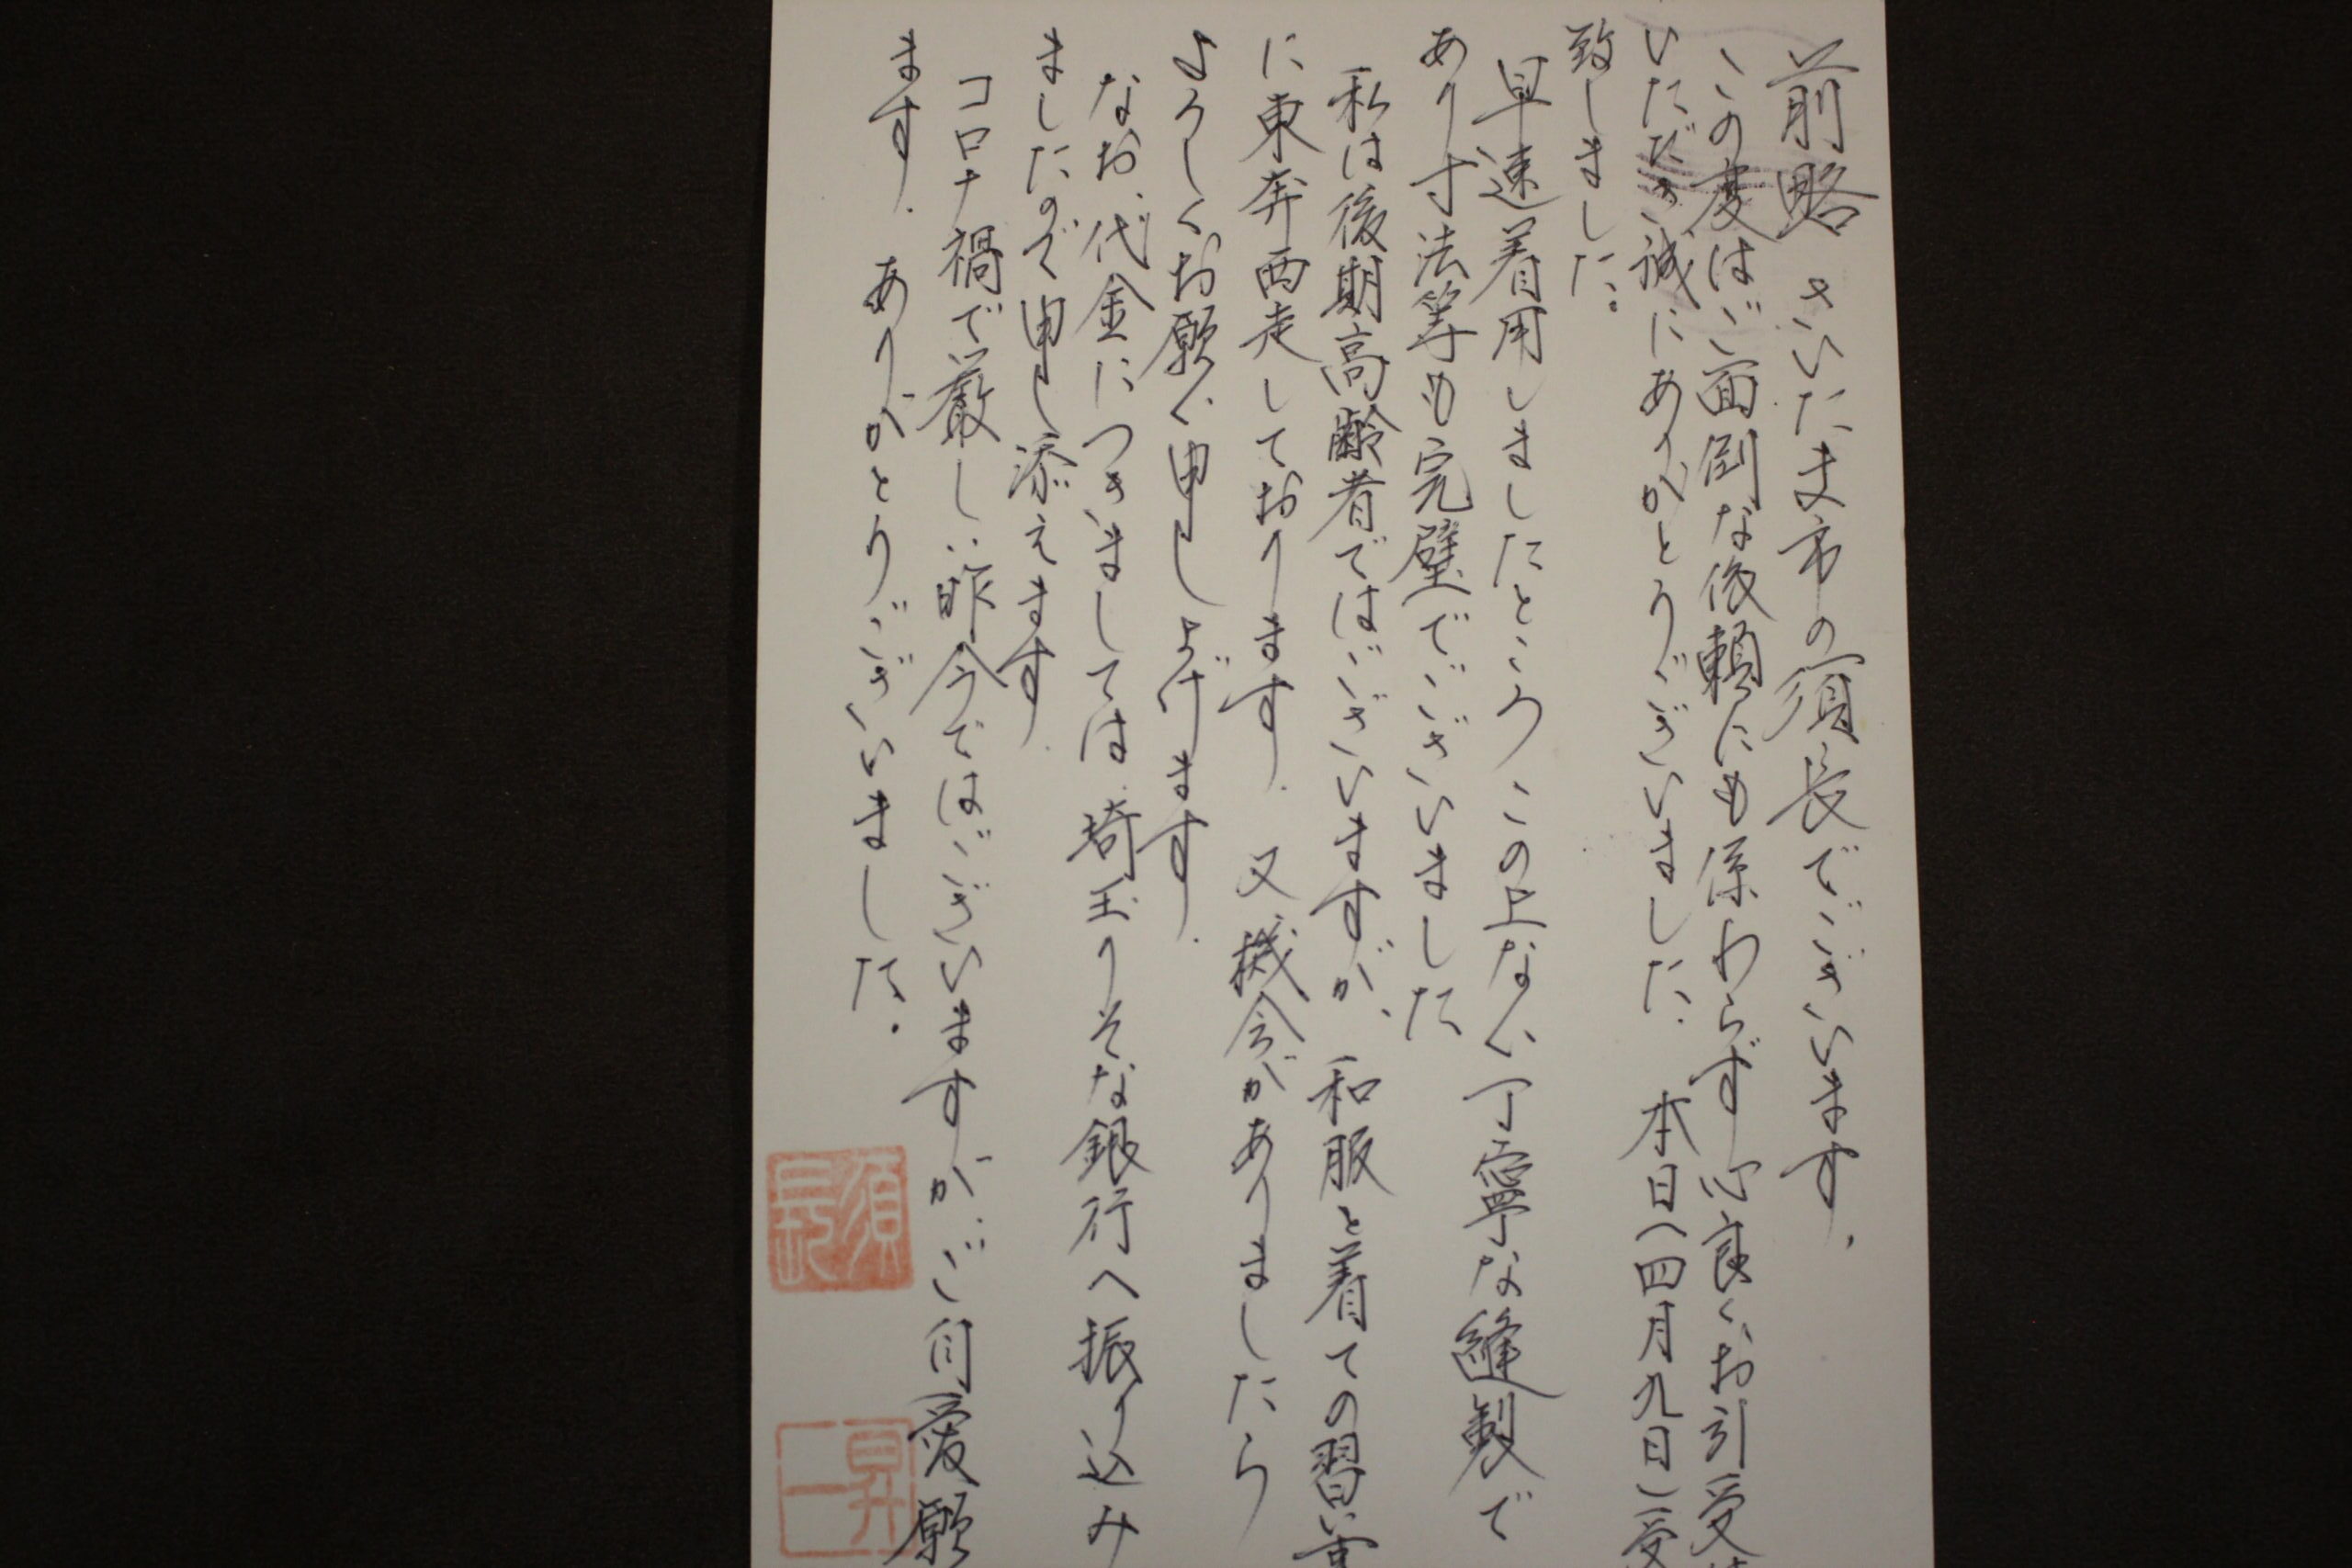 前略 さいたま市の須長でございます.
この度はご面倒な依頼にも係わらず心良くお引受
いただき誠にありがとうございました. 本日(四月九日)受
致しました.
早速着用しましたところこの上ない丁寧な縫製で
あり寸法等も完璧でございました
私は後期高齢者ではございますが、和服を着ての習い事
に東奔西走しております. 又機会がありましたら
よろしくお願い申し上げます.
なお、代金につきましては、埼玉りそな銀行へ振り込み
ましたので申し添えます.
コロナ禍で厳しい昨今ではございますがご自愛願
ます. ありがとうございました.
須長
昇一